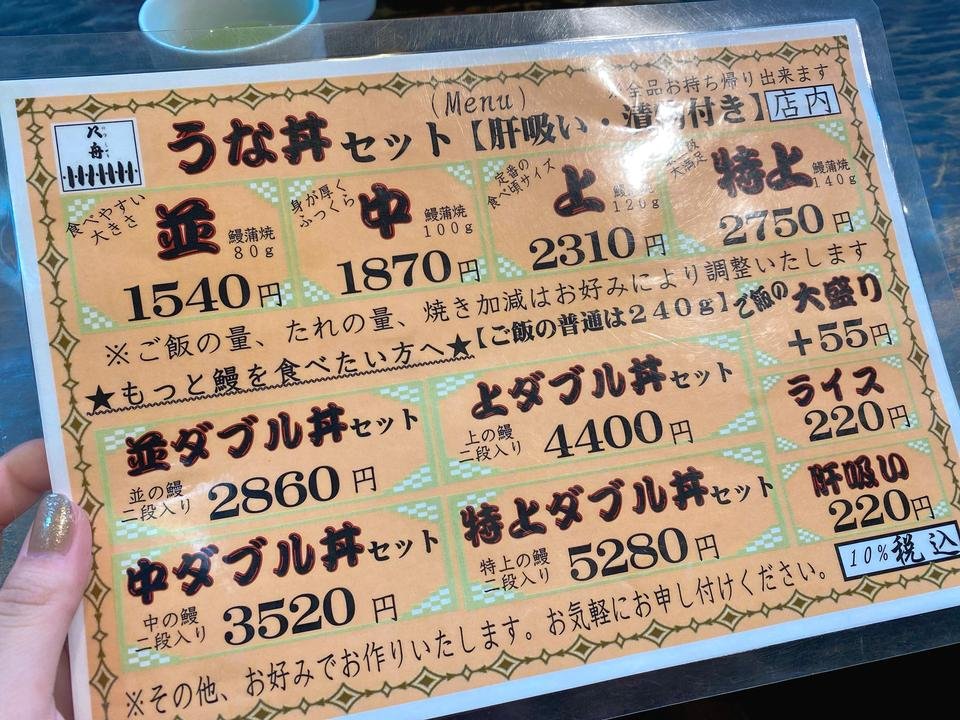 (Menu)
※全品お持ち帰り出来ます
うな丼セット【肝吸い・漬物付き】
店内
八舟
食べやすい
大きさ
並
鰻蒲焼
80g
1540円
身が厚く
ふっくら
中
鰻蒲焼
100g
1870円
定番の
食べ頃サイズ
上
鰻蒲焼
120g
2310円
大満足
特上
鰻蒲焼
140g
2750円
※ご飯の量、たれの量、焼き加減はお好みにより調整いたします
★もっと鰻を食べたい方へ★【ご飯の普通は240g】
ご飯の大盛り
+55円
並ダブル丼セット
並の鰻
二段入り
2860円
上ダブル丼セット
上の鰻
二段入り
4400円
ライス
220円
中ダブル丼セット
中の鰻
二段入り
3520円
特上ダブル丼セット
特上の鰻
二段入り
5280円
肝吸い
220円
10%税込
※その他、お好みでお作りいたします。お気軽にお申し付けください。